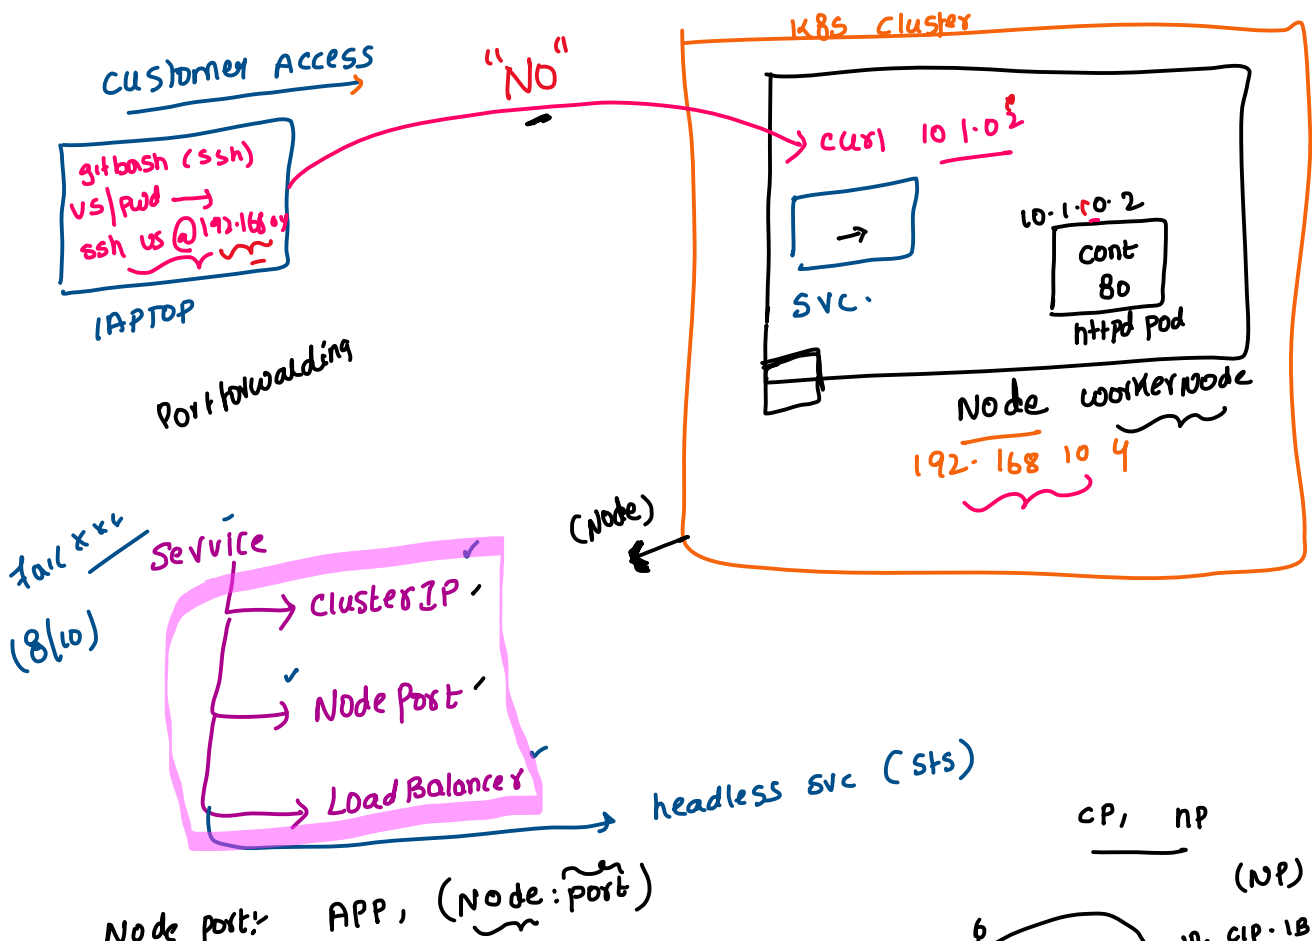 K8S Cluster
Customer Access
"NO"
gitbash (ssh)
us/pwd →
ssh us @192.168
LAPTOP
Portforwalding
curl 10 1.0
svc.
10.1.0.2
cont
80
httpd pod
Node workerNode
192. 168 10 4
(Node)
fail
(8/10)
Service
ClusterIP
Node Port
Load Balancer
headless svc (sts)
CP, NP
(NP)
Node port:- APP, (Node:port)
6
CIP. LB